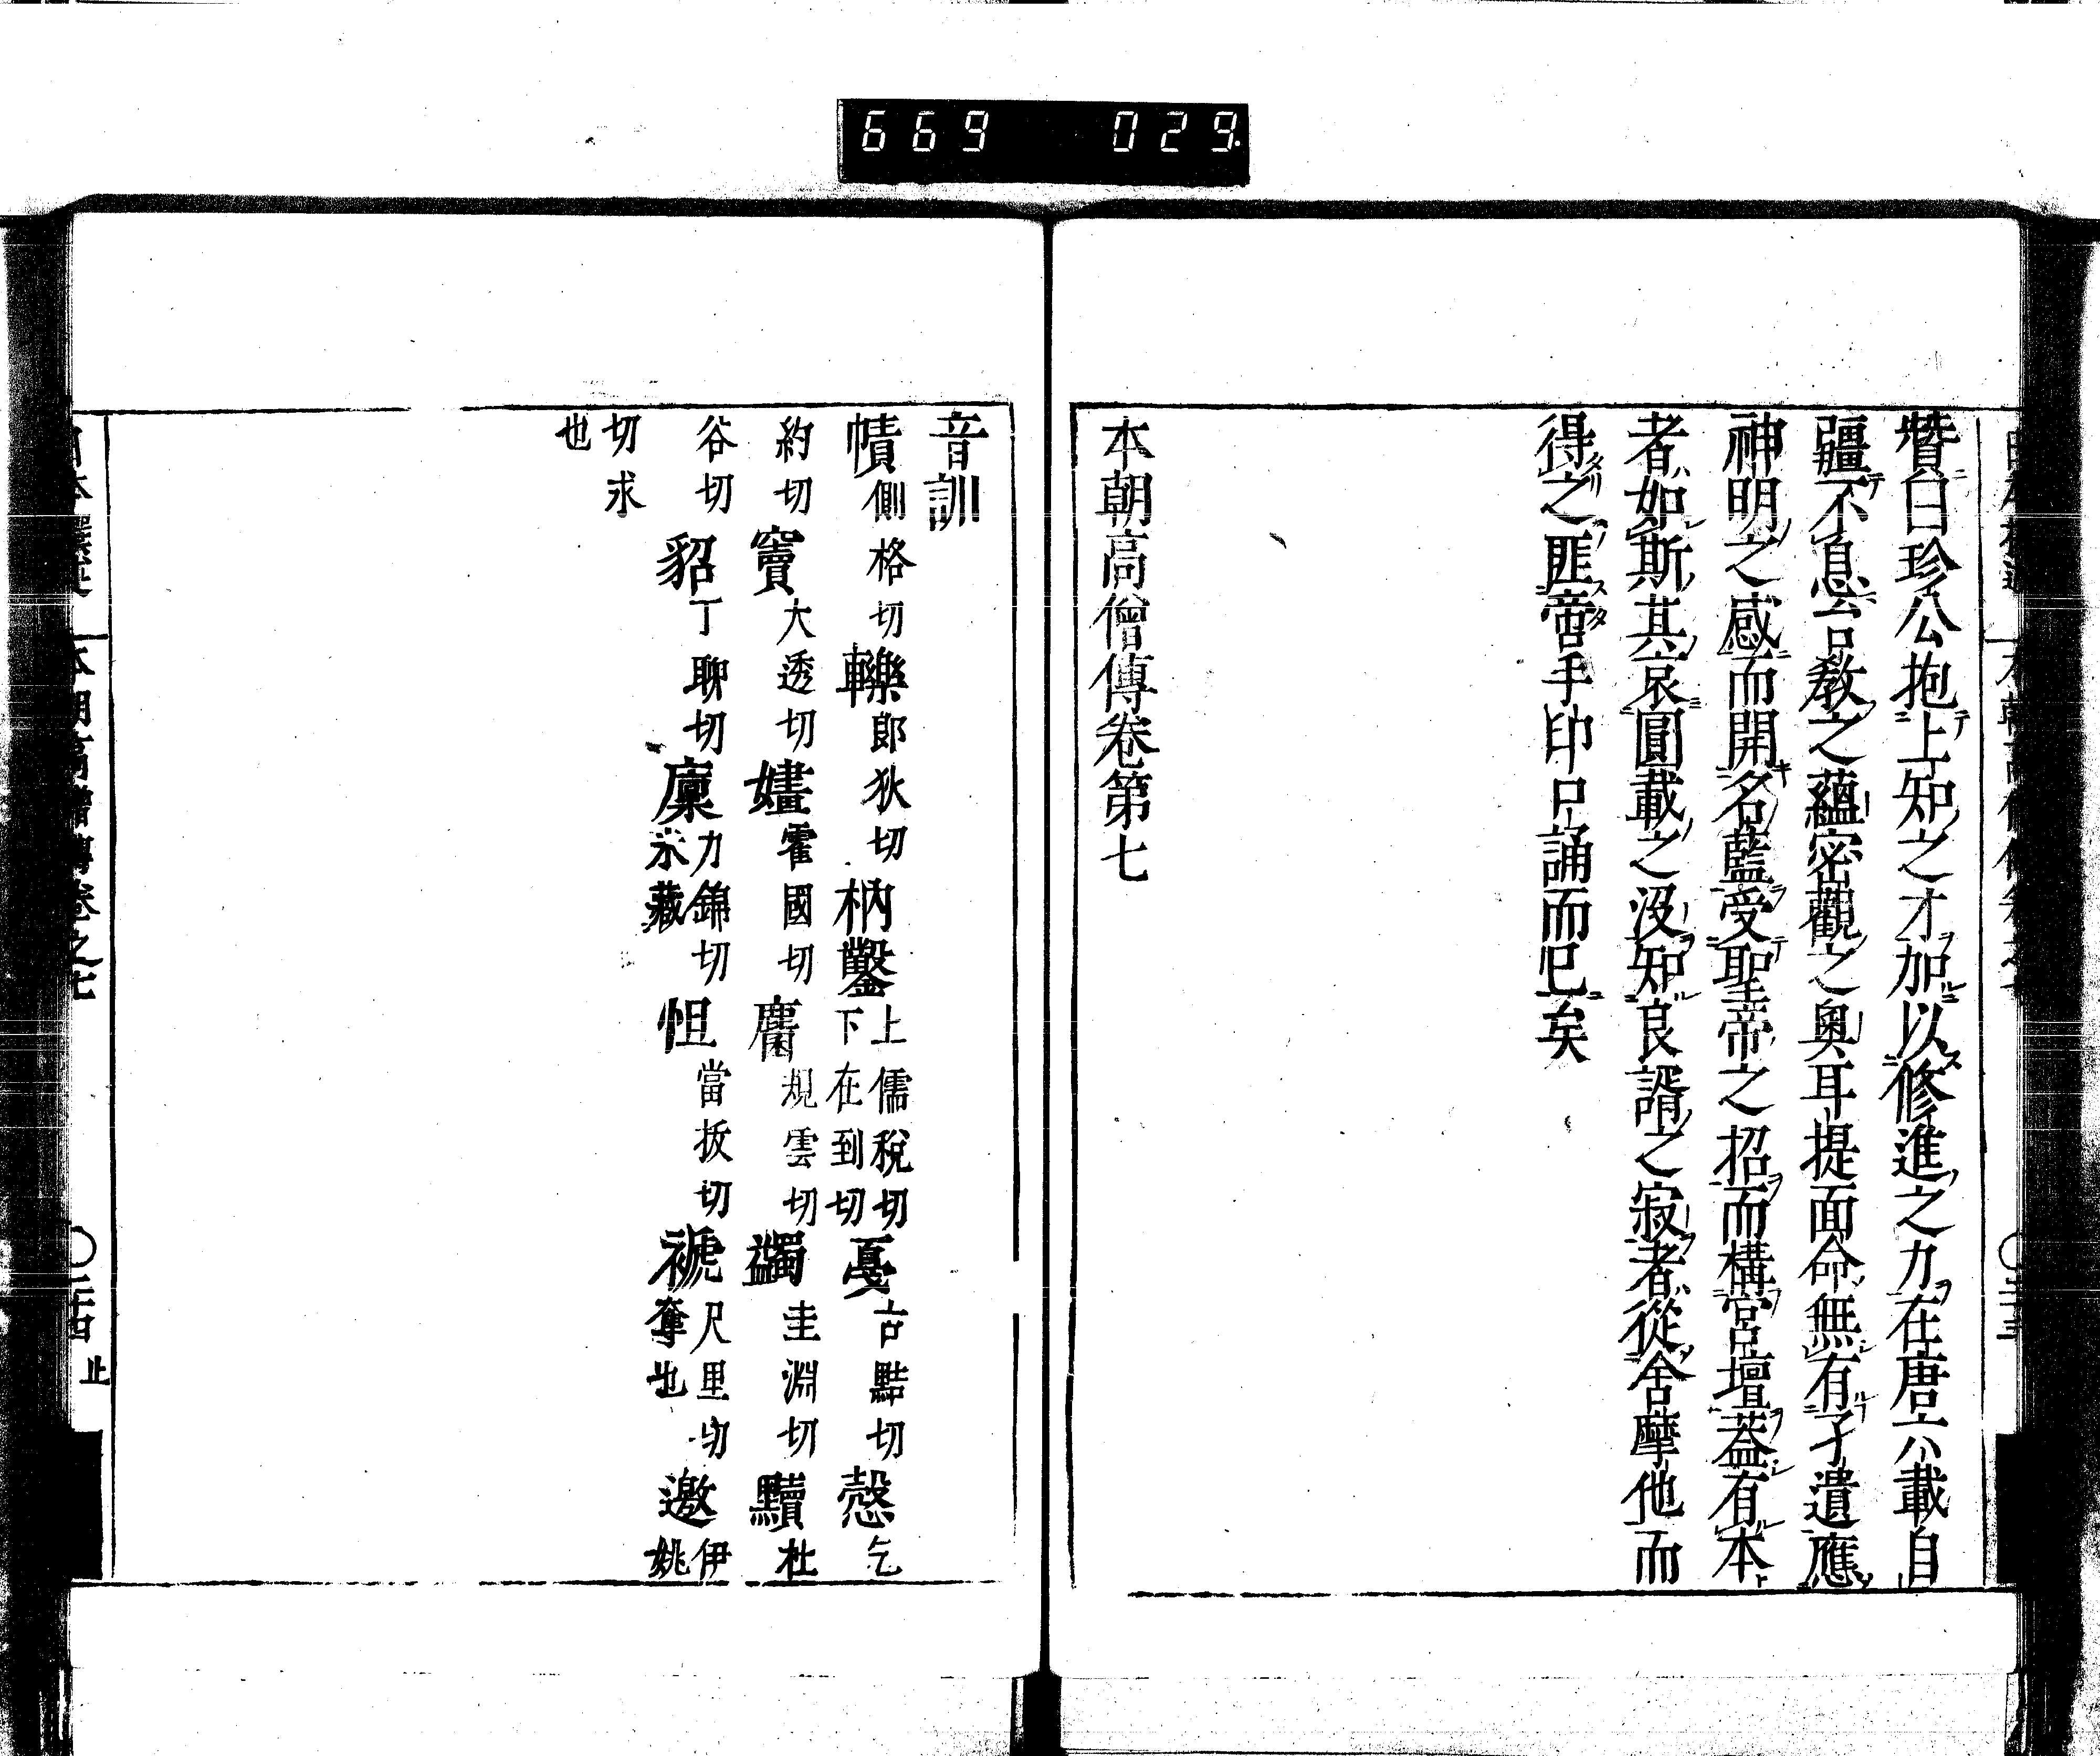 669 029
賛曰珍公抱上知之才加以修進之力在唐六載自
疆不息台教之蘊密觀之奥耳提面命無有孑遺應
神明之感而開名藍受聖帝之招而構官壇蓋有本
者如斯其哀圓載之沒知良諝之寂者從舍摩他而
得之匪啻手印口誦而已矣
本朝高僧傳卷第七
音訓
幘側格切轢郎狄切枘鑿上儒稅切下在到切戞古黠切愨乞
約切竇大透切嫿霍國切麕規雲切蠲圭淵切黷杜
谷切貂丁聊切廩力錦切米藏怛當扳切褫尺里切奪也邀伊姚
切求也
本朝高僧傳卷之七
〇二十四
止